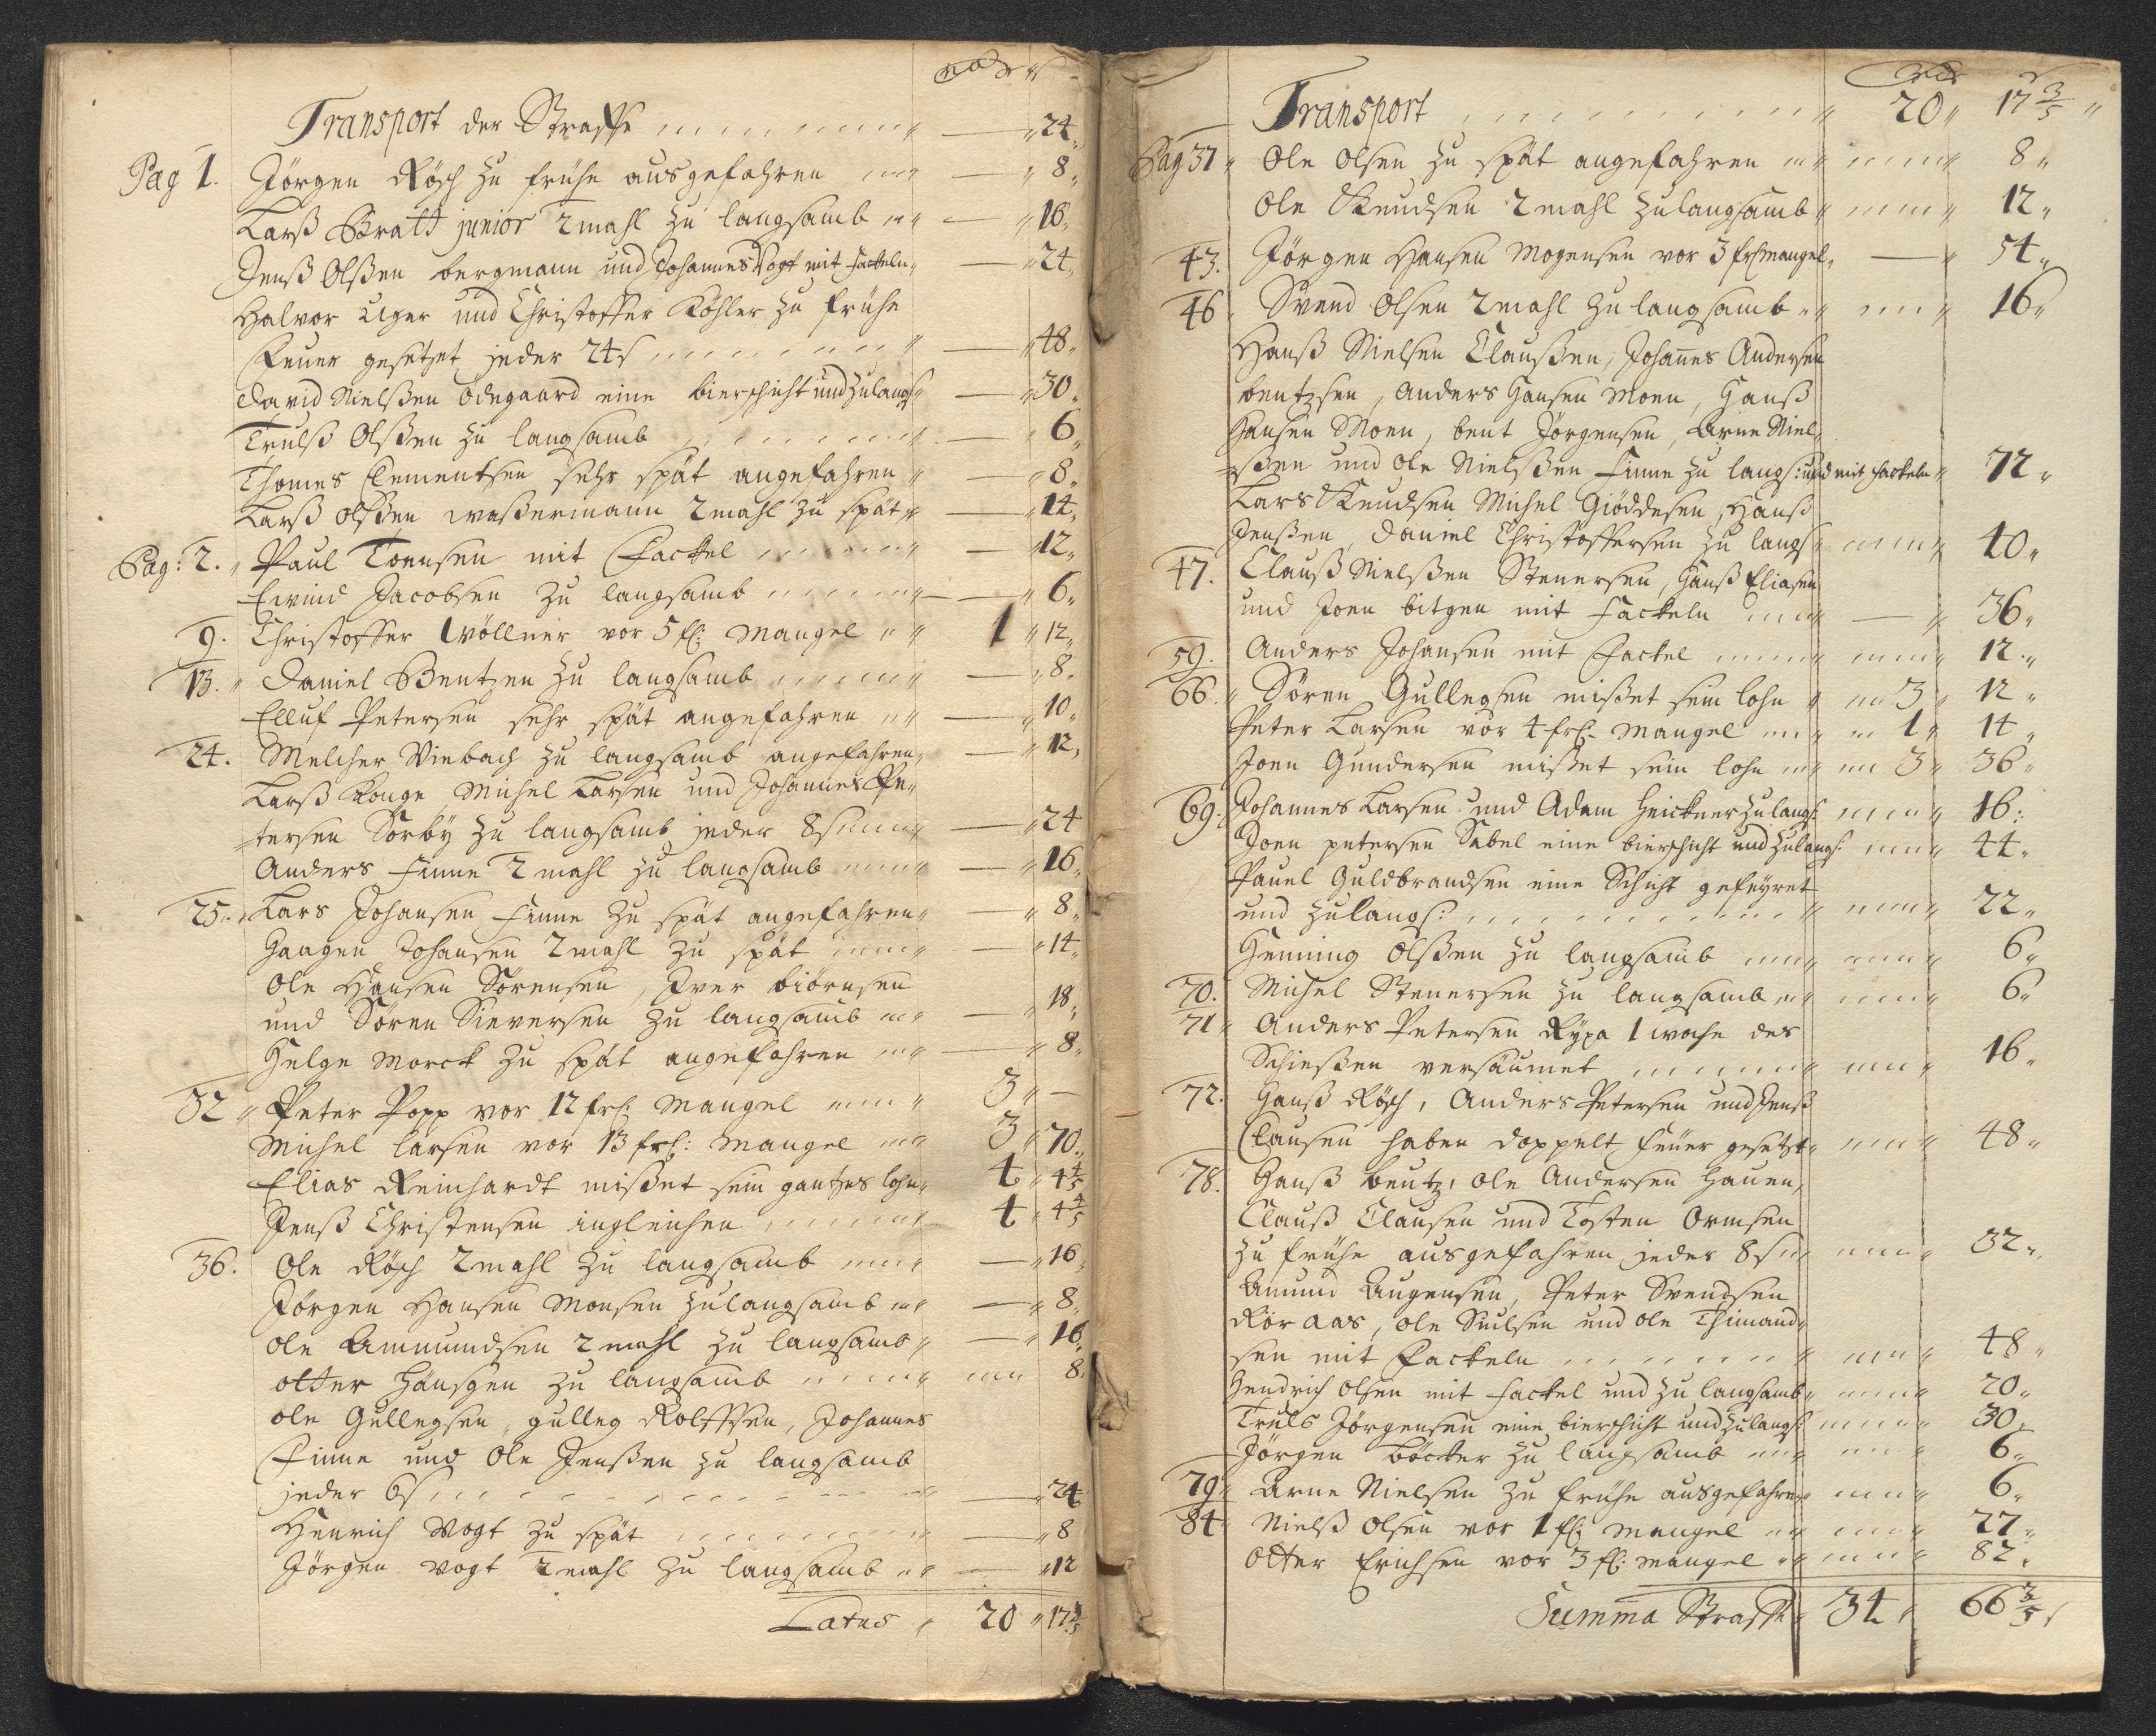 rd s
Transport der Straffe — 24
Pag 1. Jörgen Rösch zu frühe ausgefahren — 8
Larß Bratt junior 2 mahl zu langsamb — 16
Jenß Olßen bergmann und Johannes Vogt mit Fackeln — 24
Halvor Uger und Christoffer Köhler zu frühe
Feuer gesetzet jeder 24 s — 48
David Nielßen Ödegaard eine bierschicht und zulangs — 30
Trulß Olßen zu langsamb — 6
Thomes Clementsen sehr spät angefahren — 8
Larß Olßen waßermann 2 mahl zu spät — 14
Pag: 2. Paul Toensen mit Fackel — 12
Eivind Jacobsen zu langsamb — 6
9. Christoffer Wöllner vor 5 fl: Mangel 1 12
13. Daniel Bentzen zu langsamb — 8
Elluf Petersen sehr spät angefahren — 10
24. Melcher Viebach zu langsamb angefahren — 12
Larß Konge, Michel Larsen und Johannes Pe-
tersen Sörby zu langsamb jeder 8 s — 24
Anders Finne 2 mahl zu langsamb — 16
25. Lars Johansen Finne zu spät angefahren — 8
Haagen Johansen 2 mahl zu spät — 14
Ole Hansen Sörensen, Iver biörnsen
und Sören Sieversen zu langsamb — 18
Helge Morck zu spät angefahren — 8
32 Peter Popp vor 12 frl: Mangel 3 —
Michel Larsen vor 13 frl: Mangel 3 70
Elias Reinhardt mißet sein gantzes lohn 4 4 4/5
Jenß Christensen ingleichen 4 4 4/5
36. Ole Rösch 2 mahl zu langsamb — 16
Jörgen Hansen Monsen zulangsamb — 8
Ole Ammundsen 2 mahl zu langsamb — 16
Otter Hänsgen zu langsamb 8
Ole Gullegsen, gulleg Rolffsen, Johannes
Finne und Ole Jenßen zu langsamb
jeder 6 s — 24
Henrich Vogt zu spät — 8
Jörgen Vogt 2 mahl zu langsamb — 12
Latus 20 17 3/5
rdr s
Transport 20 17 3/5
Pag 37 Ole Olsen zu spät angefahren 8
Ole Knudsen 2 mahl zulangsamb 12
43. Jörgen Hansen Mogensen vor 3 frl mangel — 54
46 Svend Olsen 2 mahl zu langsamb 16
Hanß Nielsen Claußen, Johannes Andersen
bentzsen, Anders Hansen Moen, Hanß
Hansen Moen, bent Jörgensen, Arne Niel-
ßen und Ole Nielßen Finne zu langs: und mit fackeln 72
Lars Knudsen Michel Giöddesen, Hanß
Jenßen, Daniel Christoffersen zu langs 40
47. Clauß Nielßen Stenersen, Hanß Eliasen
und Joen bitgen mit Fackeln — 36
59. Anders Johansen mit Fackel 12
66. Sören Gullegsen mißet sein lohn 3 12
Peter Larsen vor 4 frl. Mangel 1 14
Joen Gundersen mißet sein lohn 3 36
69. Johannes Larsen und Adam Heickner zulangs: 16
Joen petersen Sabel eine bierschicht und zulangs: 44
Pauel Guldbrandsen eine Schicht gefeyret
und zulangs: 22
Henning Olßen zu langsamb 6
70. Michel Stenersen zu langsamb 6
71 Anders Petersen Rypa 1 woche des
Schießen versäumet 16
72. Hanß Rösch, Anders Petersen und Jenß
Clausen haben doppelt feuer gesetzt 48
78. Hanß bentz, Ole Andersen Hauen,
Clauß Clausen und Tosten Ormsen
zu frühe ausgefahren jeder 8 s 32
Amund Augensen, Peter Svendsen
Röraas, Ole Nielsen und Ole Thimand-
sen mit Fackeln 48
Hendrich Olsen mit Fackel und zu langsamb 20
Truls Jörgensen eine bierschicht und zulangs: 30
Jörgen Böcker zu langsamb 6
79 Arne Nielsen zu frühe ausgefahren 6
84 Nielß Olsen vor 1 fl: mangel 27
Otter Erichsen vor 3 fl: mangel 82
Summa Straffe 34 66 3/5